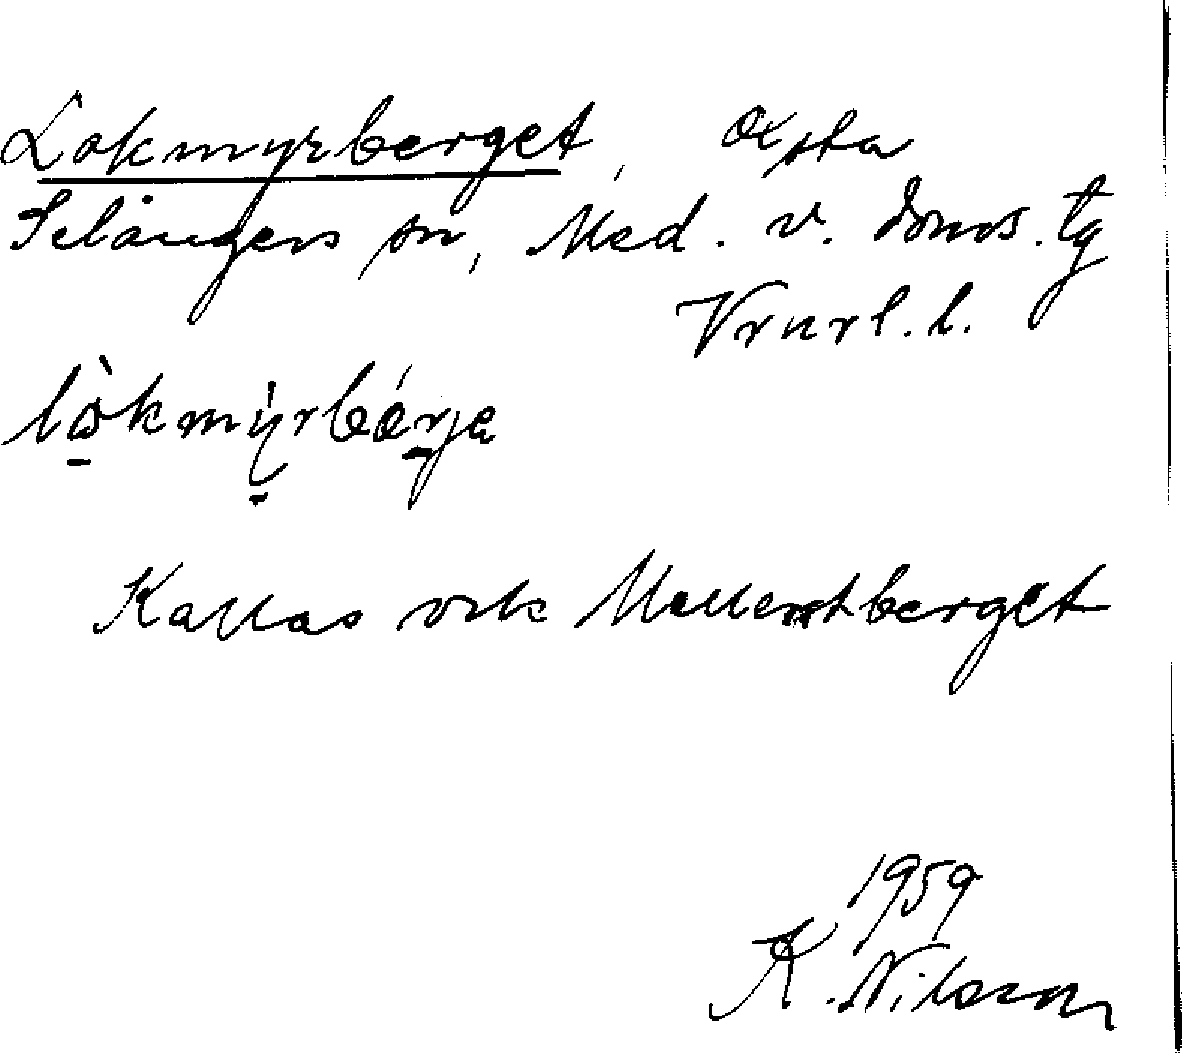 Lokmyrberget, Oxsta
Selångers sn, Med. v. doms. tg
Vrnrl. l.
lòkmỳrbérja
Kallas ock Mellerstberget
1959
K. Nilsson